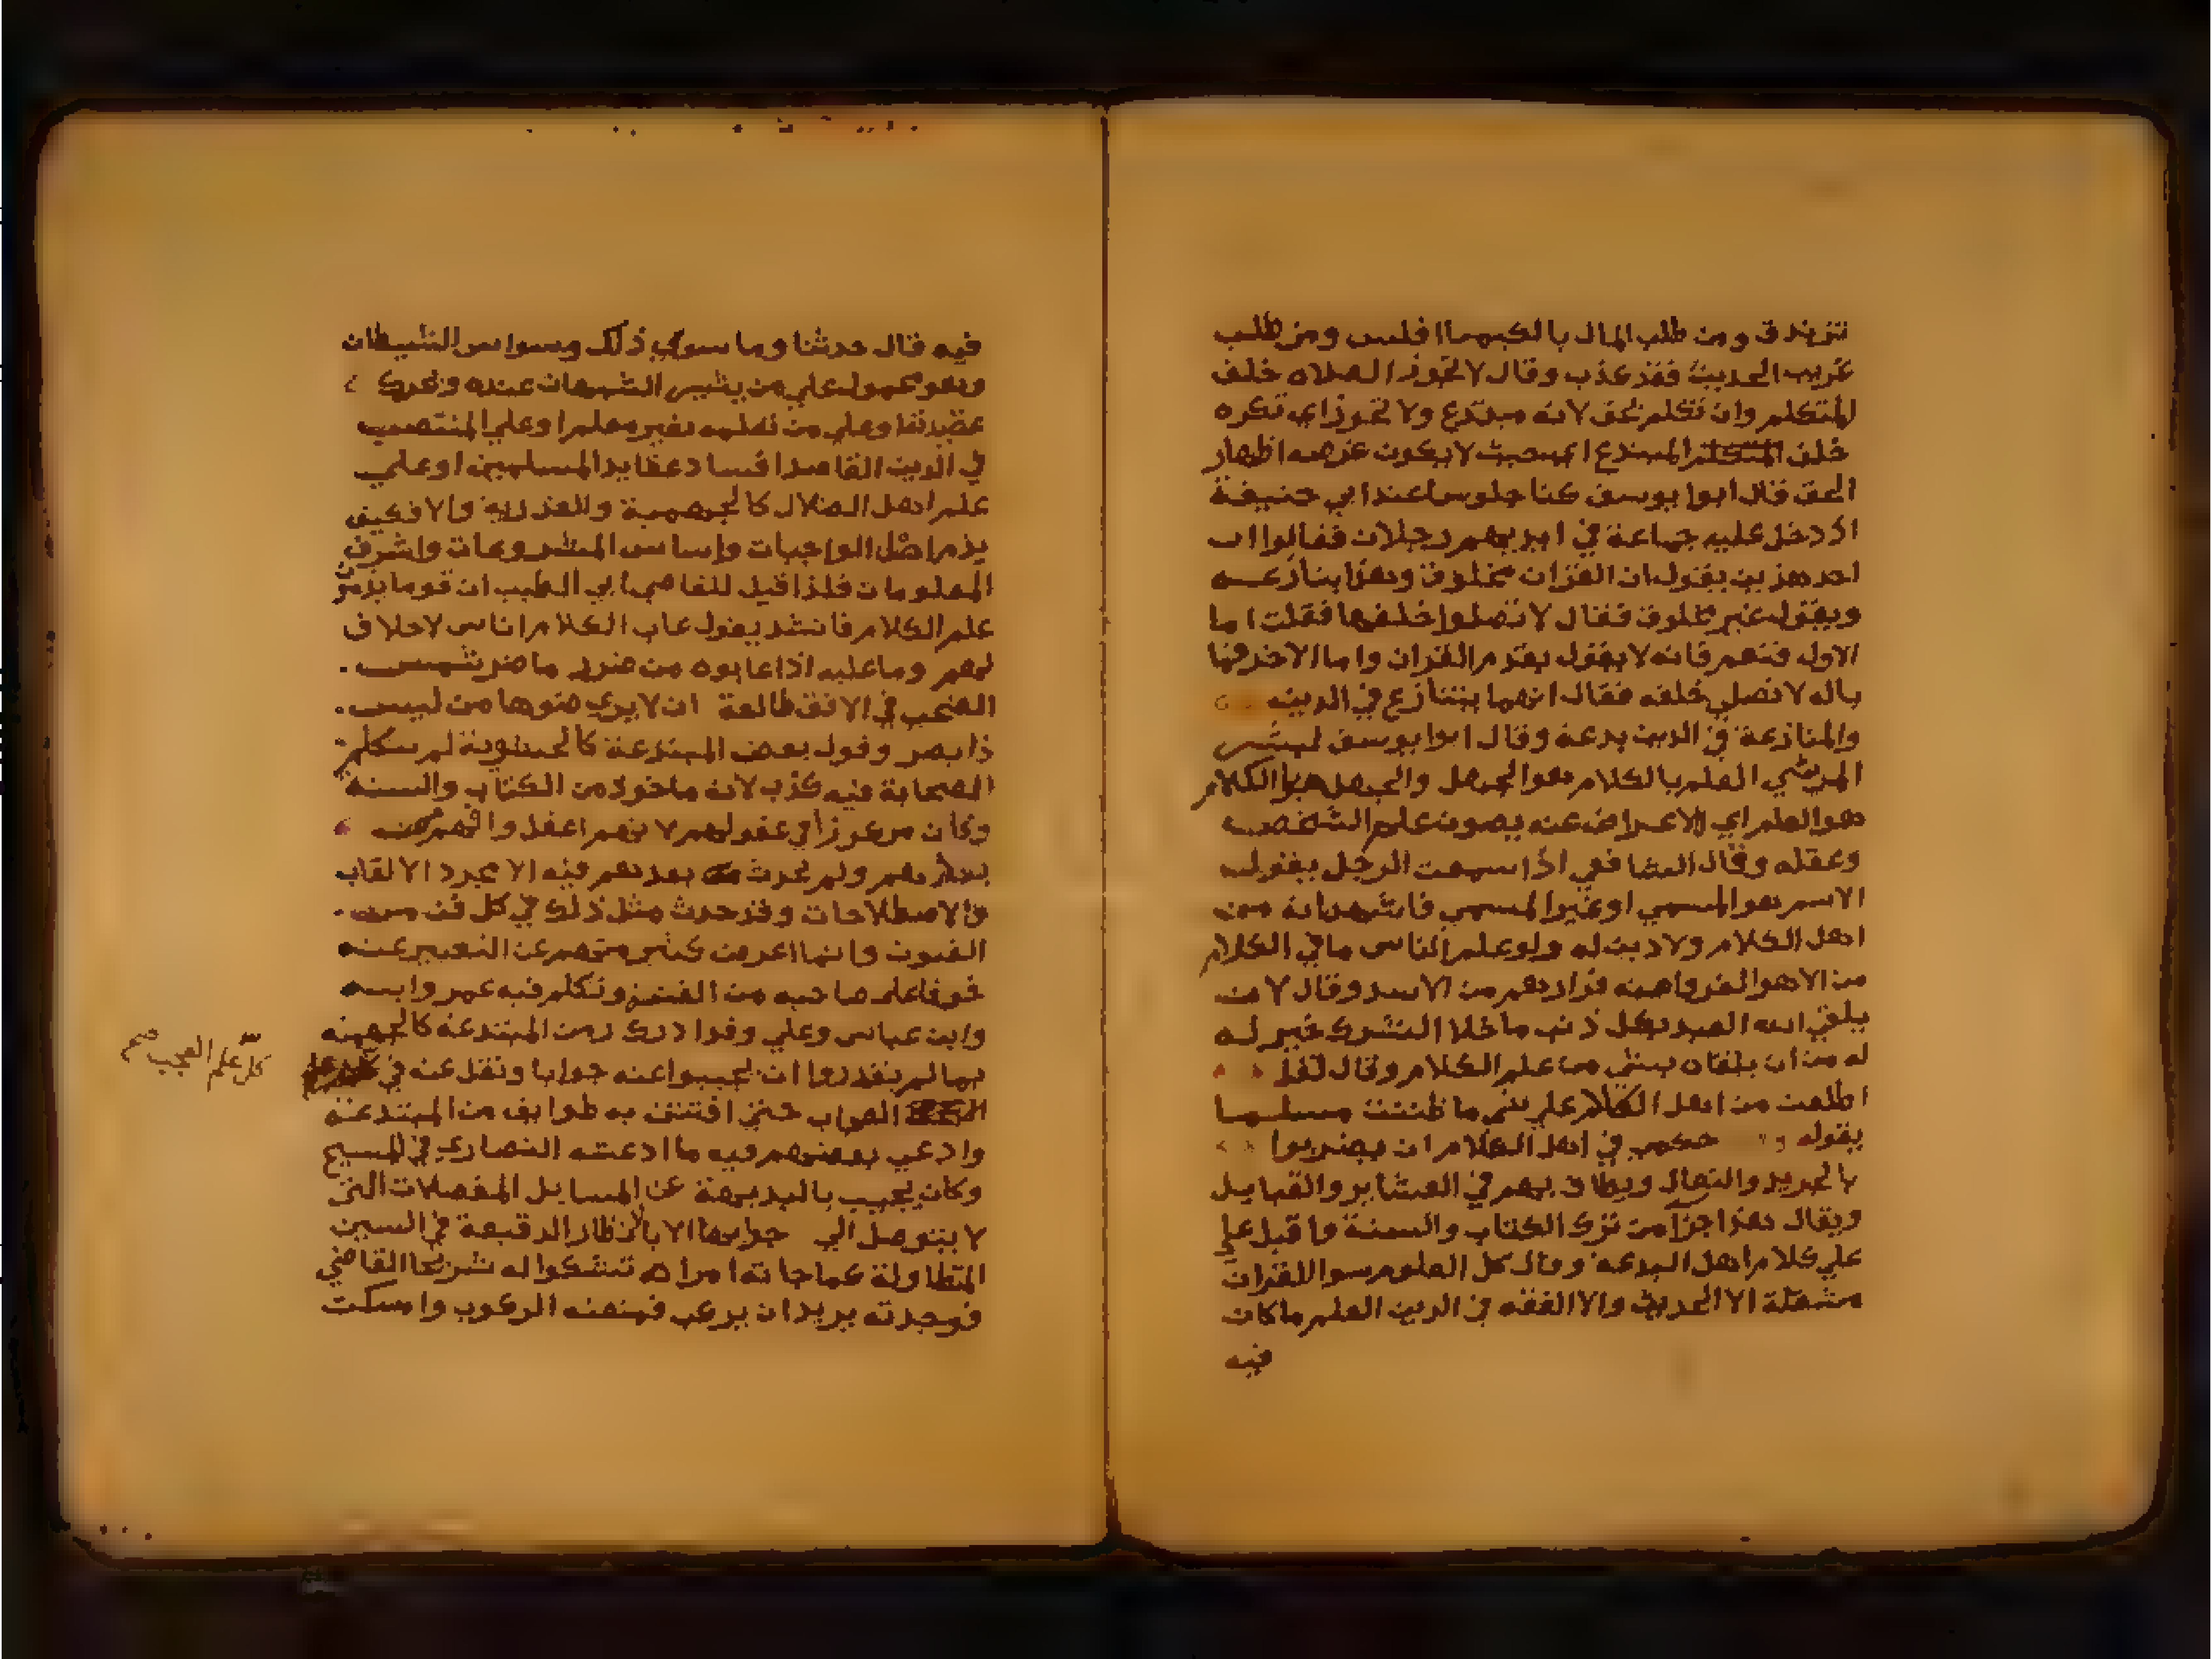 تزندق ومن طلب المال بالكيميا افلس ومن طلب
غريب الحديث فقد عذب وقال لا تجوز الصلاه خلف
المتكلم وان تكلم بحق لانه مبتدع ولا تجوز اي تكره
خلف المبتدع اي بحيث لا يكون غرضه اظهار
الحق قال ابوا يوسف كنا جلوسا عند ابي حنيفة
اذ دخل عليه جماعة في ايديهم رجلان فقالوا ان
احد هذين يقول ان القران مخلوق وهذا ينازعه
ويقول غير مخلوق فقال لا تصلوا خلفها فقلت اما
الاول فنعم فانه لا يقول بقدم القران واما الاخر فما
باله لا نصلي خلفه فقال انهما يتنازع في الدين
والمنازعة في الدين بدعة وقال ابوا يوسف لبشر
المريسي العلم بالكلام هو الجهل والجهل هو الكلام
هو العلم اي الاعراض عنه يصون علم الشخص
وعقله وقال الشافعي اذا سمعت الرجل يقول
الاسم هو المسمي او غير المسمي فاشهد انه من
اهل الكلام ولا دين له ولو علم الناس ما في الكلام
من الاهوا لفروا منه فرارهم من الاسد وقال لا
يلقي الله العبد بكل ذنب ما خلا الشرك خير له
له من ان يلقاه بشي من علم الكلام وقال لقد
اطلعت من اهل الكلام علي شي ما ظننت مسلما
يقوله و حكمي في اهل الكلام ان يضربوا
بالجريد والنعال ويطاف بهم في العشاير والقبايل
ويقال هذا جزا من ترك الكتاب والسنة واقبل علي
علي كلام اهل البدعة وقال كل العلوم سوا القران
مشغلة الا الحديث والا الفقه في الدين العلم ما كان
فيه
فيه قال حدثنا وما سوي ذلك وسواس الشيطان
وهو محمول علي من يثير الشبهات عنده وتحرك
عقيدتة او علي من تعلمه بغير معلم او علي المنتصب
في الدين القاصد افساد عقايد المسلمين او علي
علم اهل الضلال كالجهمية والقدرية والا فكيف
يذم اصل الواجبات واساس المشروعات واشرف
المعلومات فلذا قيل للقاضي ابي الطيب ان قوما يذمون
علم الكلام فانشد يقول عاب الكلام اناس لا خلاق
لهم وما عليه اذا عابوه من ضرر ما ضر شمس
الضحي في الافق طالعة ان لا يري ضوها من ليس
ذا بصر وقول بعض المبتدعة كالحشوية لم يتكلم
الصحابة فيه كذب لانه ماخوذ من الكتاب والسنة
وكان مركوزا في عقولهم لانهم اعقل وافهم
بعدهم ولم يحدث بعدهم فيه الا مجرد الالقاب
والاصطلاحات وقد حدث مثل ذلك في كل فن من
الفنون وانما اعرض كثير منهم عن التعبير عنه
خوفا علي صاحبه من الفتن وتكلم فيه عمر وابنه
وابن عباس وعلي وقد ادرك زمن المبتدعة كالجهمية
بما لم يقدروا ان يجيبوا عنه جوابا ونقل عنه في
كل علم العجب صح
العجاب حتي افتتن به طوايف من المبتدعة
وادعي بعضهم فيه ما ادعته النصاري في المسيح
وكان يجيب بالبديهة عن المسايل المفصلات التي
لا يتوصل الي جوابها الا بالانظار الدقيقة في السنين
المتطاولة كما جاته امراة تشكوا له شريحا القاضي
فوجدته يريد ان يركب فمنعته الركوب وامسكت